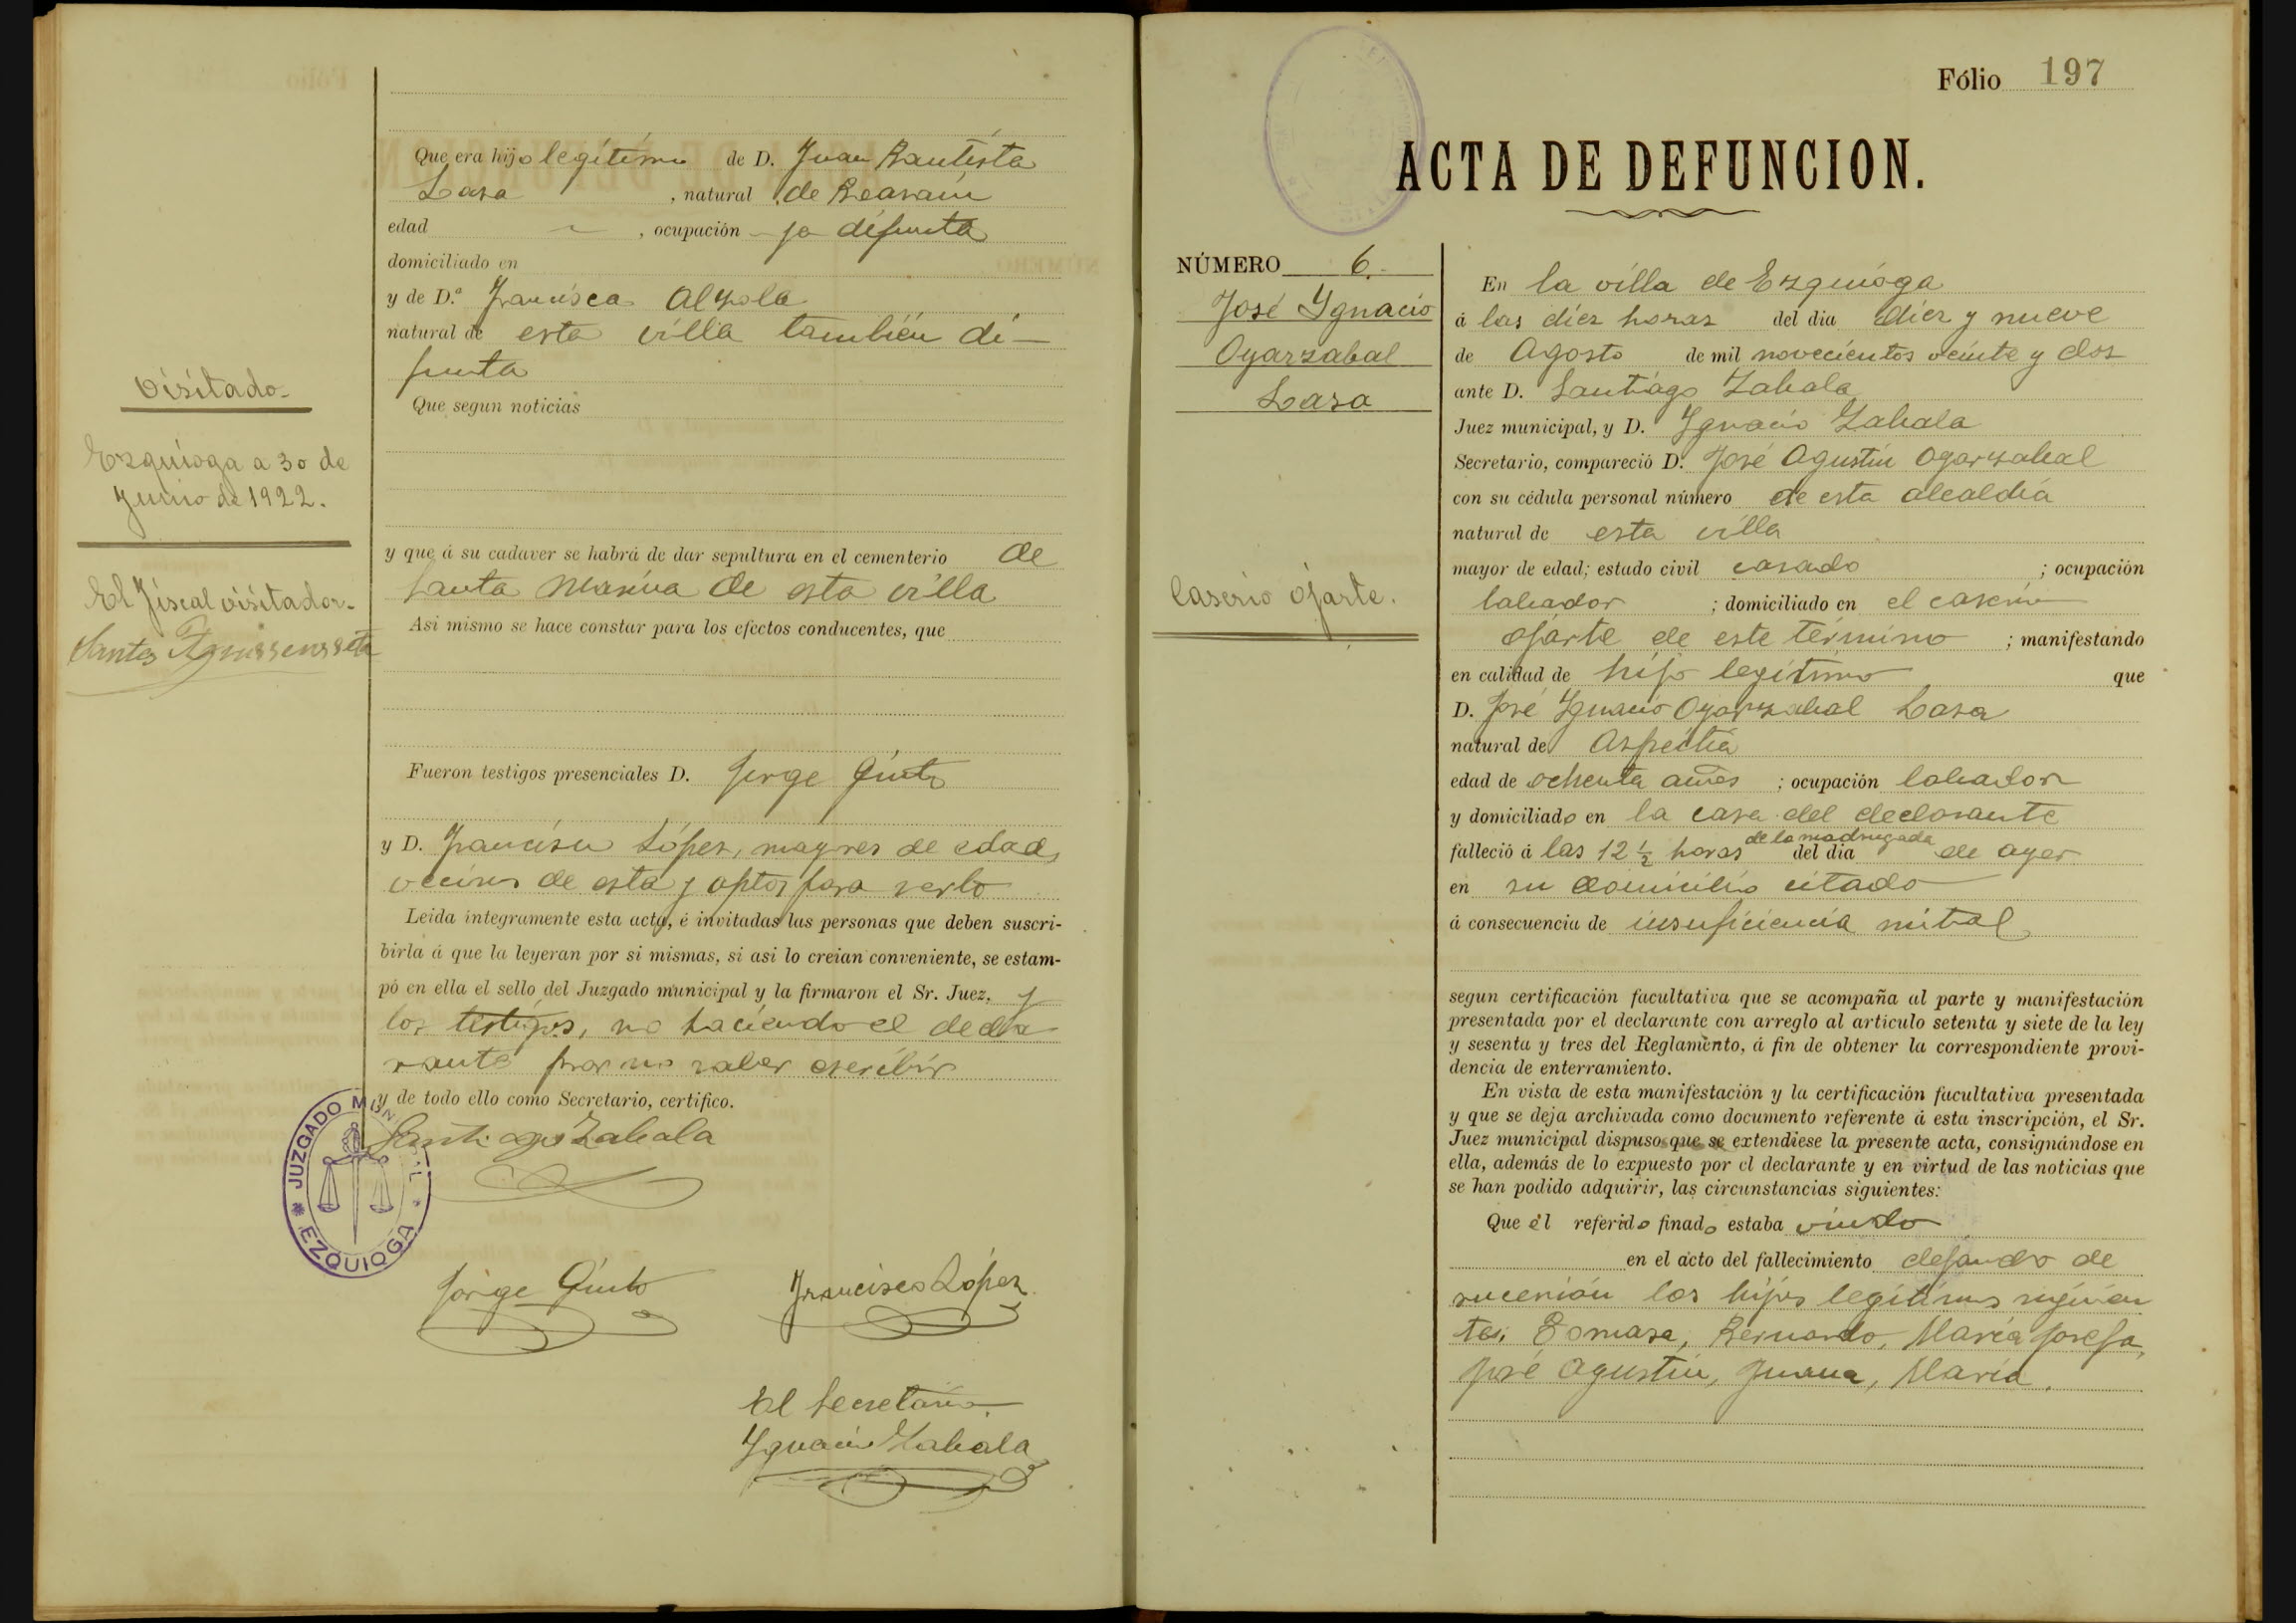 Que era hijo legítimo de D. Juan Bautista
Lasa , natural de Beasain
edad , ocupación ya difunta
domiciliado en
y de D.ª Francisca Alzola
natural de esta villa también di—
funta
Que segun noticias
y que á su cadaver se habrá de dar sepultura en el cementerio de
Santa Marina de esta villa
Asi mismo se hace constar para los efectos conducentes, que
Fueron testigos presenciales D. Jorge Quinto
y D. Francisco López, mayores de edad,
vecinos de esta y aptos para serlo
Leida integramente esta acta, é invitadas las personas que deben suscri-
birla á que la leyeran por si mismas, si asi lo creian conveniente, se estam-
pó en ella el sello del Juzgado municipal y la firmaron el Sr. Juez, y
los testigos, no haciendo el decla
rante por no saber escribir
y de todo ello como Secretario, certifico.
Santiago Zabala
JUZGADO MUNICIPAL
* EZQUIOGA *
Jorge Quinto
Francisco López
El Secretario
Ygnacio Zabala
Visitado-
Ezquioga a 30 de
Junio de 1922.
El Fiscal visitador-
Santos
Fólio 197
ACTA DE DEFUNCION.
NÚMERO 6.
José Ygnacio
Oyarzabal
Lasa
Caserio Ojarte.
En la villa de Ezquioga
á las diez horas del dia diez y nueve
de Agosto de mil novecientos veinte y dos
ante D. Santiago Zabala
Juez municipal, y D. Ygnacio Zabala
Secretario, compareció D. José Agustin Oyarzabal
con su cédula personal número de esta alcaldía
natural de esta villa
mayor de edad; estado civil casado ; ocupación
labrador ; domiciliado en el caserio
Ojarte de este término ; manifestando
en calidad de hijo legítimo que
D. José Ygnacio Oyarzabal Lasa
natural de Aspeitia
edad de ochenta años ; ocupación labrador
y domiciliado en la casa del declarante
falleció á las 12 ½ horas de la madrugada del dia de ayer
en su domicilio citado
á consecuencia de insuficiencia mitral
segun certificación facultativa que se acompaña al parte y manifestación
presentada por el declarante con arreglo al articulo setenta y siete de la ley
y sesenta y tres del Reglamento, á fin de obtener la correspondiente provi-
dencia de enterramiento.
En vista de esta manifestación y la certificación facultativa presentada
y que se deja archivada como documento referente á esta inscripción, el Sr.
Juez municipal dispuso que se extendiese la presente acta, consignándose en
ella, además de lo expuesto por el declarante y en virtud de las noticias que
se han podido adquirir, las circunstancias siguientes:
Que él referido finado estaba viudo
en el acto del fallecimiento dejando de
sucenión los hijos legítimos siguien
tes: Tomasa, Bernardo, María Josefa,
José Agustin, Juana, María.